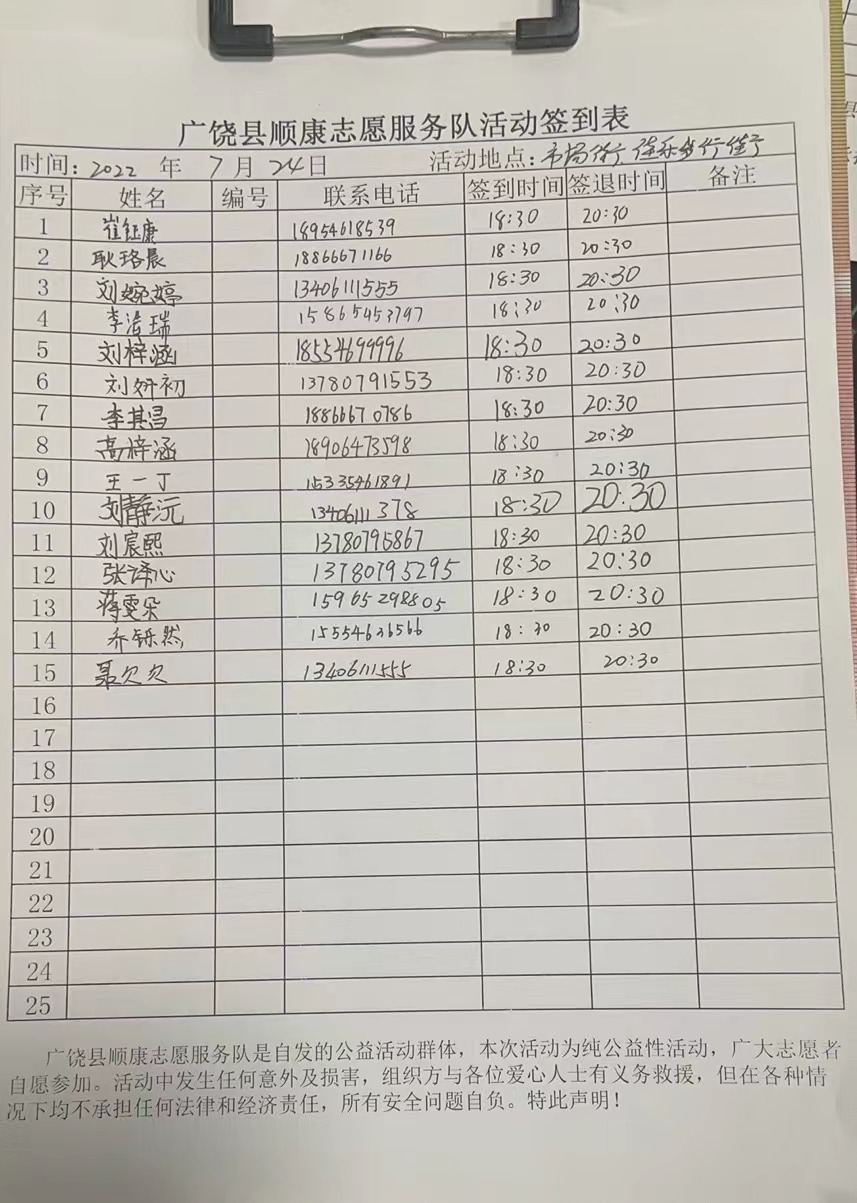 广饶县顺康志愿服务队活动签到表
时间：2022 年 7 月 24 日 活动地点：市场街
序号 姓名 编号 联系电话 签到时间 签退时间 备注
1 崔钰康 18954618539 18:30 20:30
2 耿珞晨 18866671166 18:30 20:30
3 刘婉婷 13406111555 18:30 20:30
4 李浩瑞 15865453797 18:30 20:30
5 刘梓涵 18554699996 18:30 20:30
6 刘妍初 13780791553 18:30 20:30
7 李其昌 18866670786 18:30 20:30
8 高梓涵 18906473598 18:30 20:30
9 王一丁 15335461891 18:30 20:30
10 刘静沅 13406111378 18:30 20:30
11 刘宸熙 13780795867 18:30 20:30
12 张译心 13780795295 18:30 20:30
13 蒋雯朵 15965298805 18:30 20:30
14 乔铄然 15554636566 18:30 20:30
15 聂欠欠 13406111555 18:30 20:30
16
17
18
19
20
21
22
23
24
25
广饶县顺康志愿服务队是自发的公益活动群体，本次活动为纯公益性活动，广大志愿者
自愿参加。活动中发生任何意外及损害，组织方与各位爱心人士有义务救援，但在各种情
况下均不承担任何法律和经济责任，所有安全问题自负。特此声明！